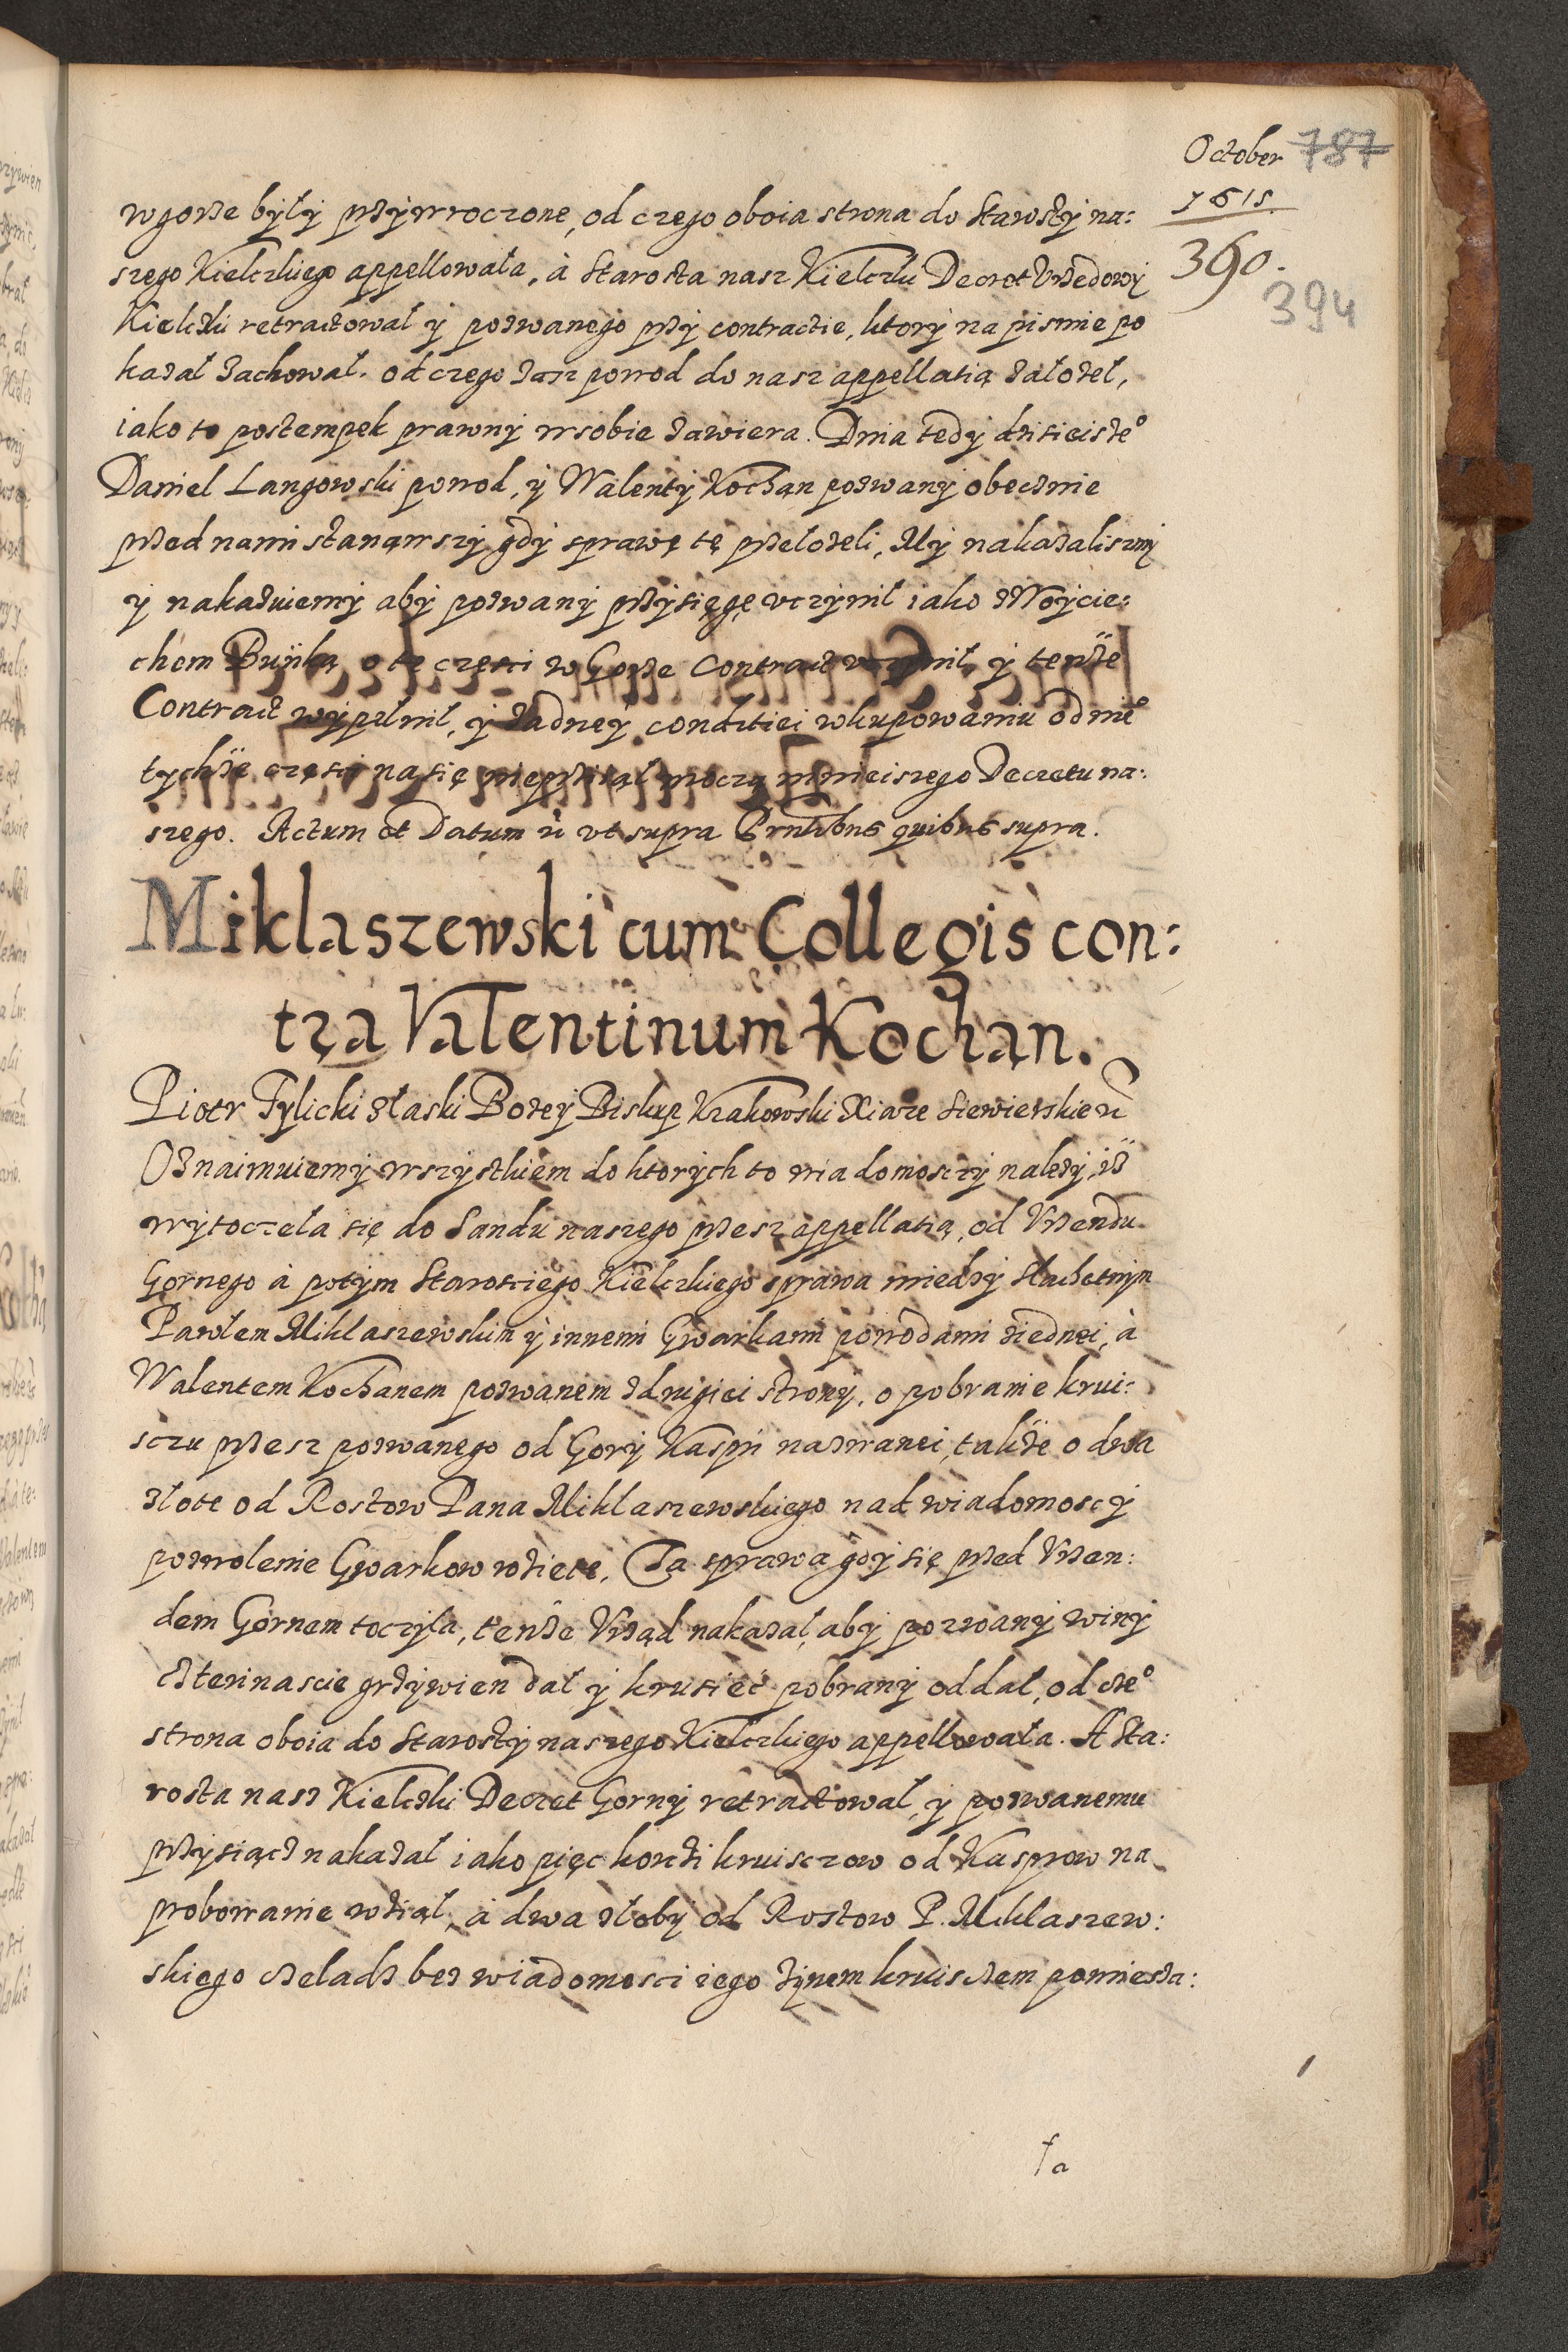 October 787
1615.
390.
394
wgorze były przywroczone, od czego oboia strona do Starosty na:
szego Kielczkiego appellowała, à Starosta nasz Kielczki Decret Vrzędowy
Kielczki retractował y pozwanego przy contractie, ktory na pismie po
kazał zachował. od czego zasz powod do nasz appellatią założeł,
iako to postempek prawny wsobie zawiera. Dnia tedy dzisieiszeº
Daniel Langowski powod, y Walenty Kochan pozwany obecznie
przed nami stanąwszy gdy sprawę tę przełożeli, My nakazaliszmy
y nakazuiemy aby pozwany przysięgę vczynił iako zWoycie:
chem Buńką o tę części w Gorze Contract vczynił, y tenże
Contract wypełnił, y żadney conditiei wkupowaniu od nieº
tychże części na się nieprzijął moczą ninieiszego Decretu na:
szego. Actum et Datum ut supra Prntibus quibus supra.
Miklaszewski cum Collegis con:
tra Valentinum Kochan.
Piotr Tylicki złaski Bożey Biskup Krakowski Xiąże Siewierskie
Oznaimuiemy wszystkiem do ktorych to wiadomosczy należy, iż
wytoczeła się do Sandu naszego przesz appellatią, od Vrzendu
Gornego à potym Starosciego Kielczkiego sprawa miedzy Slachetnym
Pawłem Miklaszewskim y innemi Gwarkami powodami ziednei, à
Walentem Kochanem pozwanem zdrugiei strony, o pobranie krui:
sczu przesz pozwanego od Gory Kaspri nazwanei, także o dwa
złote od Rostow Pana Miklaszewskiego nad wiadomoscy
pozwolenie Gwarkow wzięte. Ta sprawa gdy się przed Vrzen:
dem Gornem toczyła, tenże Vrząd nakazał, aby pozwany winy
czterinascie grzywien dał y krusiec pobrany oddał, od czeº
strona oboia do Starosty naszego Kielczkiego appellowała. A Sta:
rosta nasz Kielczki Decret Gorny retractował, y pozwanemu
przysiącz nakazał iako pięc korzi kruisczow od Kasprow na
probowanie wziął, à dwa złoby od Rostow P. Miklaszew:
skiego czeladz bez wiadomosci iego żynem kruisczem pomiesza:
ła